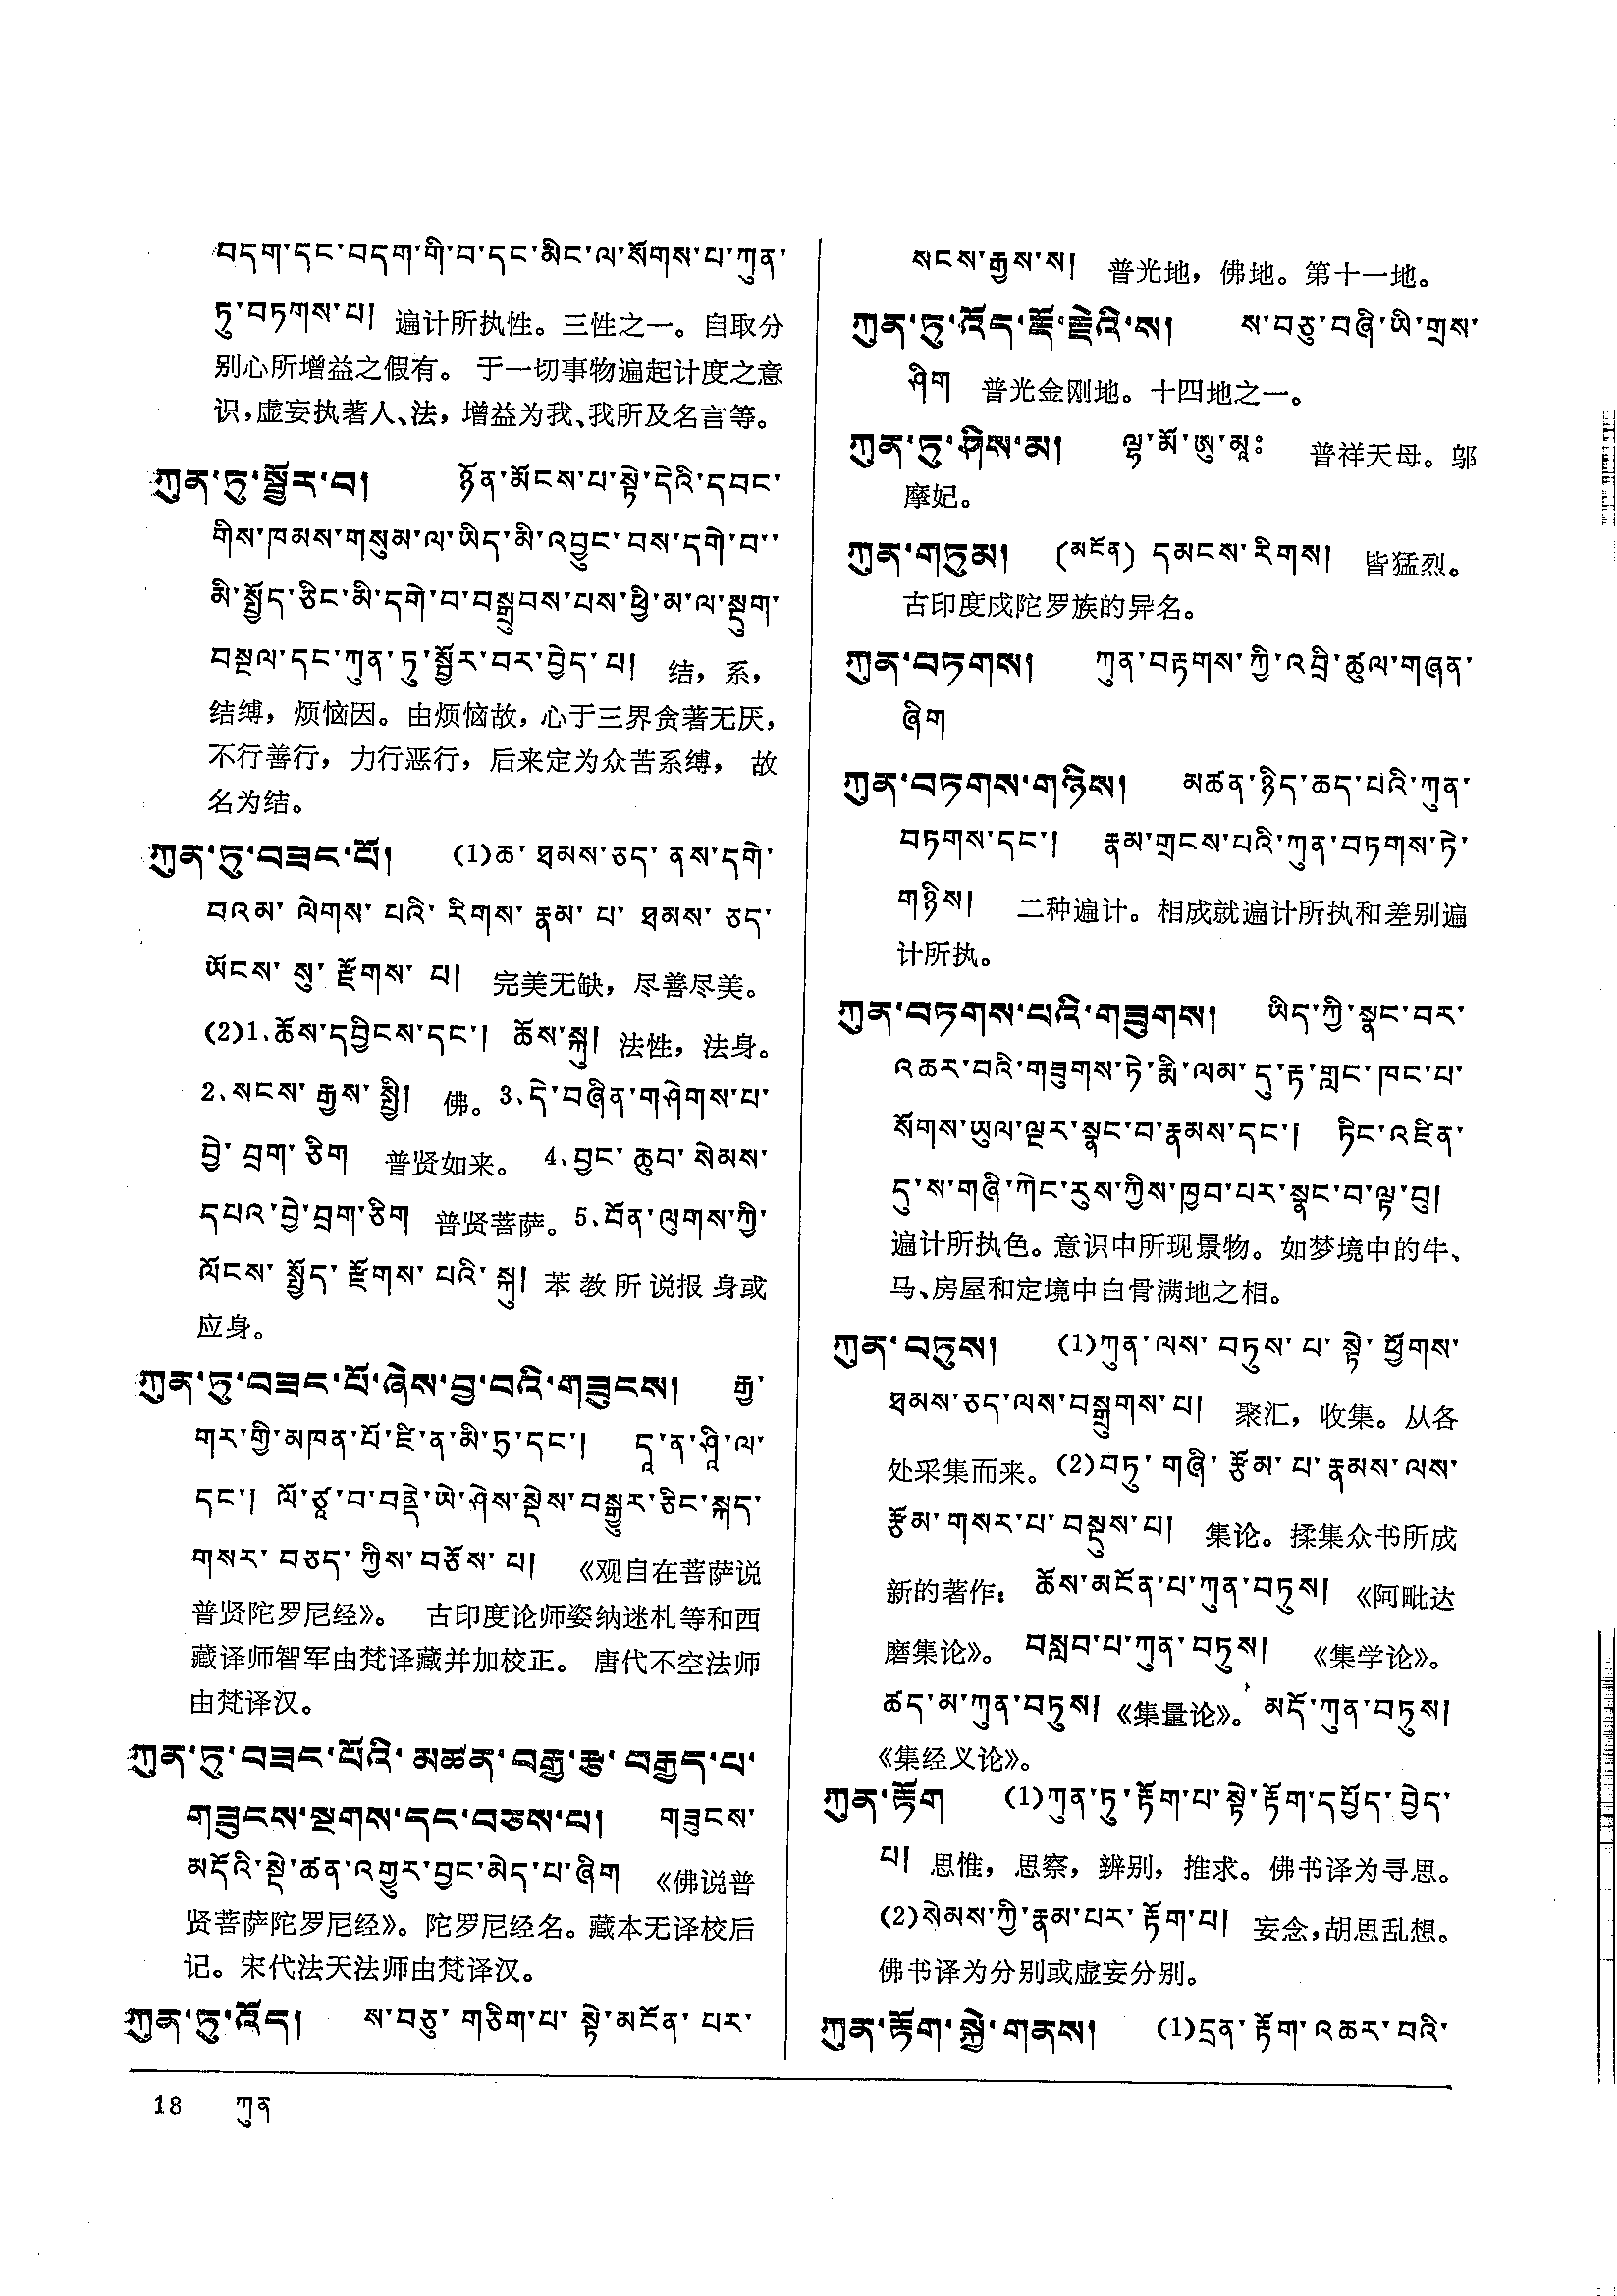 བདག་དང་བདག་གི་བ་དང་མིང་ལ་སོགས་པ་ཀུན་
ཏུ་བཏགས་པ། 遍计所执性。三性之一。自取分
别心所增益之假有。 于一切事物遍起计度之意
识，虚妄执著人、法，增益为我、我所及名言等。
ཀུན་ཏུ་སྦྱོར་བ། ཉོན་མོངས་པ་སྟེ་དེའི་དབང་
གིས་ཁམས་གསུམ་ལ་ཡིད་མི་འབྱུང་བས་དགེ་བ་་
མི་སྤྱོད་ཅིང་མི་དགེ་བ་བསྒྲུབས་པས་ཕྱི་མ་ལ་སྡུག་
བསྔལ་དང་ཀུན་ཏུ་སྦྱོར་བར་བྱེད་པ། 结，系，
结缚，烦恼因。由烦恼故，心于三界贪著无厌，
不行善行，力行恶行，后来定为众苦系缚， 故
名为结。
ཀུན་ཏུ་བཟང་པོ། (1)ཆ་ ཐམས་ཅད་ ནས་དགེ་
བའམ་ ལེགས་ པའི་ རིགས་ རྣམ་ པ་ ཐམས་ ཅད་
ཡོངས་ སུ་ རྫོགས་ པ། 完美无缺，尽善尽美。
(2)1.ཆོས་དབྱིངས་དང་། ཆོས་སྐུ། 法性，法身。
2.སངས་ རྒྱས་ སྤྱི། 佛。3.དེ་བཞིན་གཤེགས་པ་
བྱེ་ བྲག་ ཅིག 普贤如来。 4.བྱང་ ཆུབ་ སེམས་
དཔའ་བྱེ་བྲག་ཅིག 普贤菩萨。5.བོན་ལུགས་ཀྱི་
ལོངས་ སྤྱོད་ རྫོགས་ པའི་ སྐུ། 苯教所说报身或
应身。
ཀུན་ཏུ་བཟང་པོ་ཞེས་བྱ་བའི་གཟུངས། རྒྱ་
གར་གྱི་མཁན་པོ་ཛི་ན་མི་ཏྲ་དང་། དཱ་ན་ཤཱི་ལ་
དང་། ལོ་ཙཱ་བ་བནྡེ་ཡེ་ཤེས་སྡེས་བསྒྱུར་ཅིང་སྐད་
གསར་ བཅད་ ཀྱིས་བཅོས་ པ། 《观自在菩萨说
普贤陀罗尼经》。 古印度论师姿纳迷札等和西
藏译师智军由梵译藏并加校正。 唐代不空法师
由梵译汉。
ཀུན་ཏུ་བཟང་པོའི་ མཚན་བརྒྱ་རྩ་ བརྒྱད་པ་
གཟུངས་སྔགས་དང་བཅས་པ། གཟུངས་
མདོའི་སྡེ་ཚན་འགྱུར་བྱང་མེད་པ་ཞིག 《佛说普
贤菩萨陀罗尼经》。陀罗尼经名。藏本无译校后
记。宋代法天法师由梵译汉。
ཀུན་ཏུ་འོད། ས་བཅུ་ གཅིག་པ་ སྟེ་མངོན་ པར་
སངས་རྒྱས་ས། 普光地，佛地。第十一地。
ཀུན་ཏུ་འོད་རྡོ་རྗེའི་ས། ས་བཅུ་བཞི་ཡི་གྲས་
ཤིག 普光金刚地。十四地之一。
ཀུན་ཏུ་ཤིས་མ། ལྷ་མོ་ཨུ་མཱ： 普祥天母。邬
摩妃。
ཀུན་གཏུམ། (མངོན) དམངས་རིགས། 皆猛烈。
古印度戍陀罗族的异名。
ཀུན་བཏགས། ཀུན་བརྟགས་ཀྱི་འབྲི་ཚུལ་གཞན་
ཞིག
ཀུན་བཏགས་གཉིས། མཚན་ཉིད་ཆད་པའི་ཀུན་
བཏགས་དང་། རྣམ་གྲངས་པའི་ཀུན་བཏགས་ཏེ་
གཉིས། 二种遍计。相成就遍计所执和差别遍
计所执。
ཀུན་བཏགས་པའི་གཟུགས། ཡིད་ཀྱི་སྣང་བར་
འཆར་བའི་གཟུགས་ཏེ་རྨི་ལམ་དུ་རྟ་གླང་ཁང་པ་
སོགས་ཡུལ་ལྔར་སྣང་བ་རྣམས་དང་། ཏིང་འཛིན་
དུ་ས་གཞི་ཀེང་རུས་ཀྱིས་ཁྱབ་པར་སྣང་བ་ལྟ་བུ།
遍计所执色。意识中所现景物。如梦境中的牛、
马、房屋和定境中白骨满地之相。
ཀུན་བཏུས། (1)ཀུན་ལས་ བཏུས་ པ་ སྟེ་ ཕྱོགས་
ཐམས་ཅད་ལས་བསྒྲུགས་པ། 聚汇，收集。从各
处采集而来。(2)བཏུ་ གཞི་ རྩོམ་ པ་ རྣམས་ལས་
རྩོམ་གསར་པ་བསྡུས་པ། 集论。揉集众书所成
新的著作： ཆོས་མངོན་པ་ཀུན་བཏུས། 《阿毗达
磨集论》。 བསླབ་པ་ཀུན་བཏུས། 《集学论》。
ཚད་མ་ཀུན་བཏུས། 《集量论》。 མདོ་ཀུན་བཏུས།
《集经义论》。
ཀུན་རྟོག (1)ཀུན་ཏུ་རྟོག་པ་སྟེ་རྟོག་དཔྱོད་བྱེད་
པ། 思惟，思察，辨别，推求。佛书译为寻思。
(2)སེམས་ཀྱི་རྣམ་པར་ རྟོག་པ། 妄念，胡思乱想。
佛书译为分别或虚妄分别。
ཀུན་རྟོག་སྐྱེ་གནས། (1)དྲན་རྟོག་འཆར་བའི་
18 ཀུན